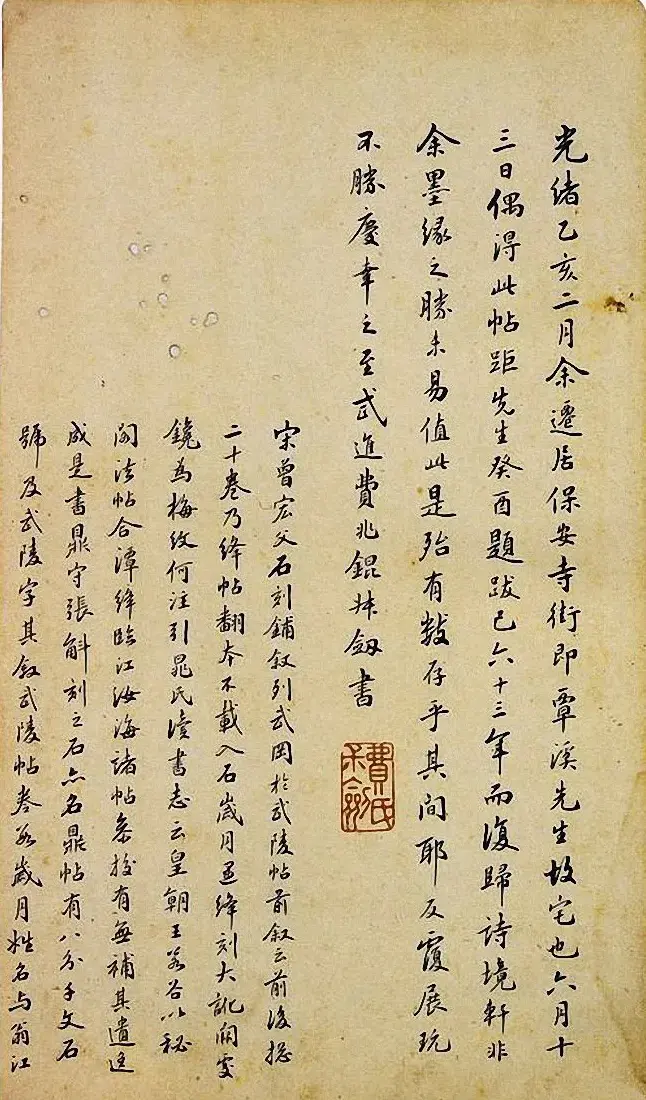 光緒乙亥二月余遷居保安寺街即覃溪先生故宅也六月十
三日偶得此帖距先生癸酉題跋已六十三年而復歸詩境軒非
余墨緣之勝未易值此是殆有數存乎其間耶反覆展玩
不勝慶幸之至武進費兆錕㭙劒書
費氏
宋曾宏父石刻鋪敘列武岡於武陵帖前敘云前後總
二十卷乃絳帖翻本不載入石歲月
絳刻大訛
鐫為梅紋何注引晁氏讀書志云皇朝王若谷以秘
閣法帖合潭絳臨江汝海諸帖參挍有無補其遺逸
成是書鼎守張斛刻之石亦名鼎帖有八分千文石
號及武陵字其敘武陵帖卷數歲月姓名与翁江